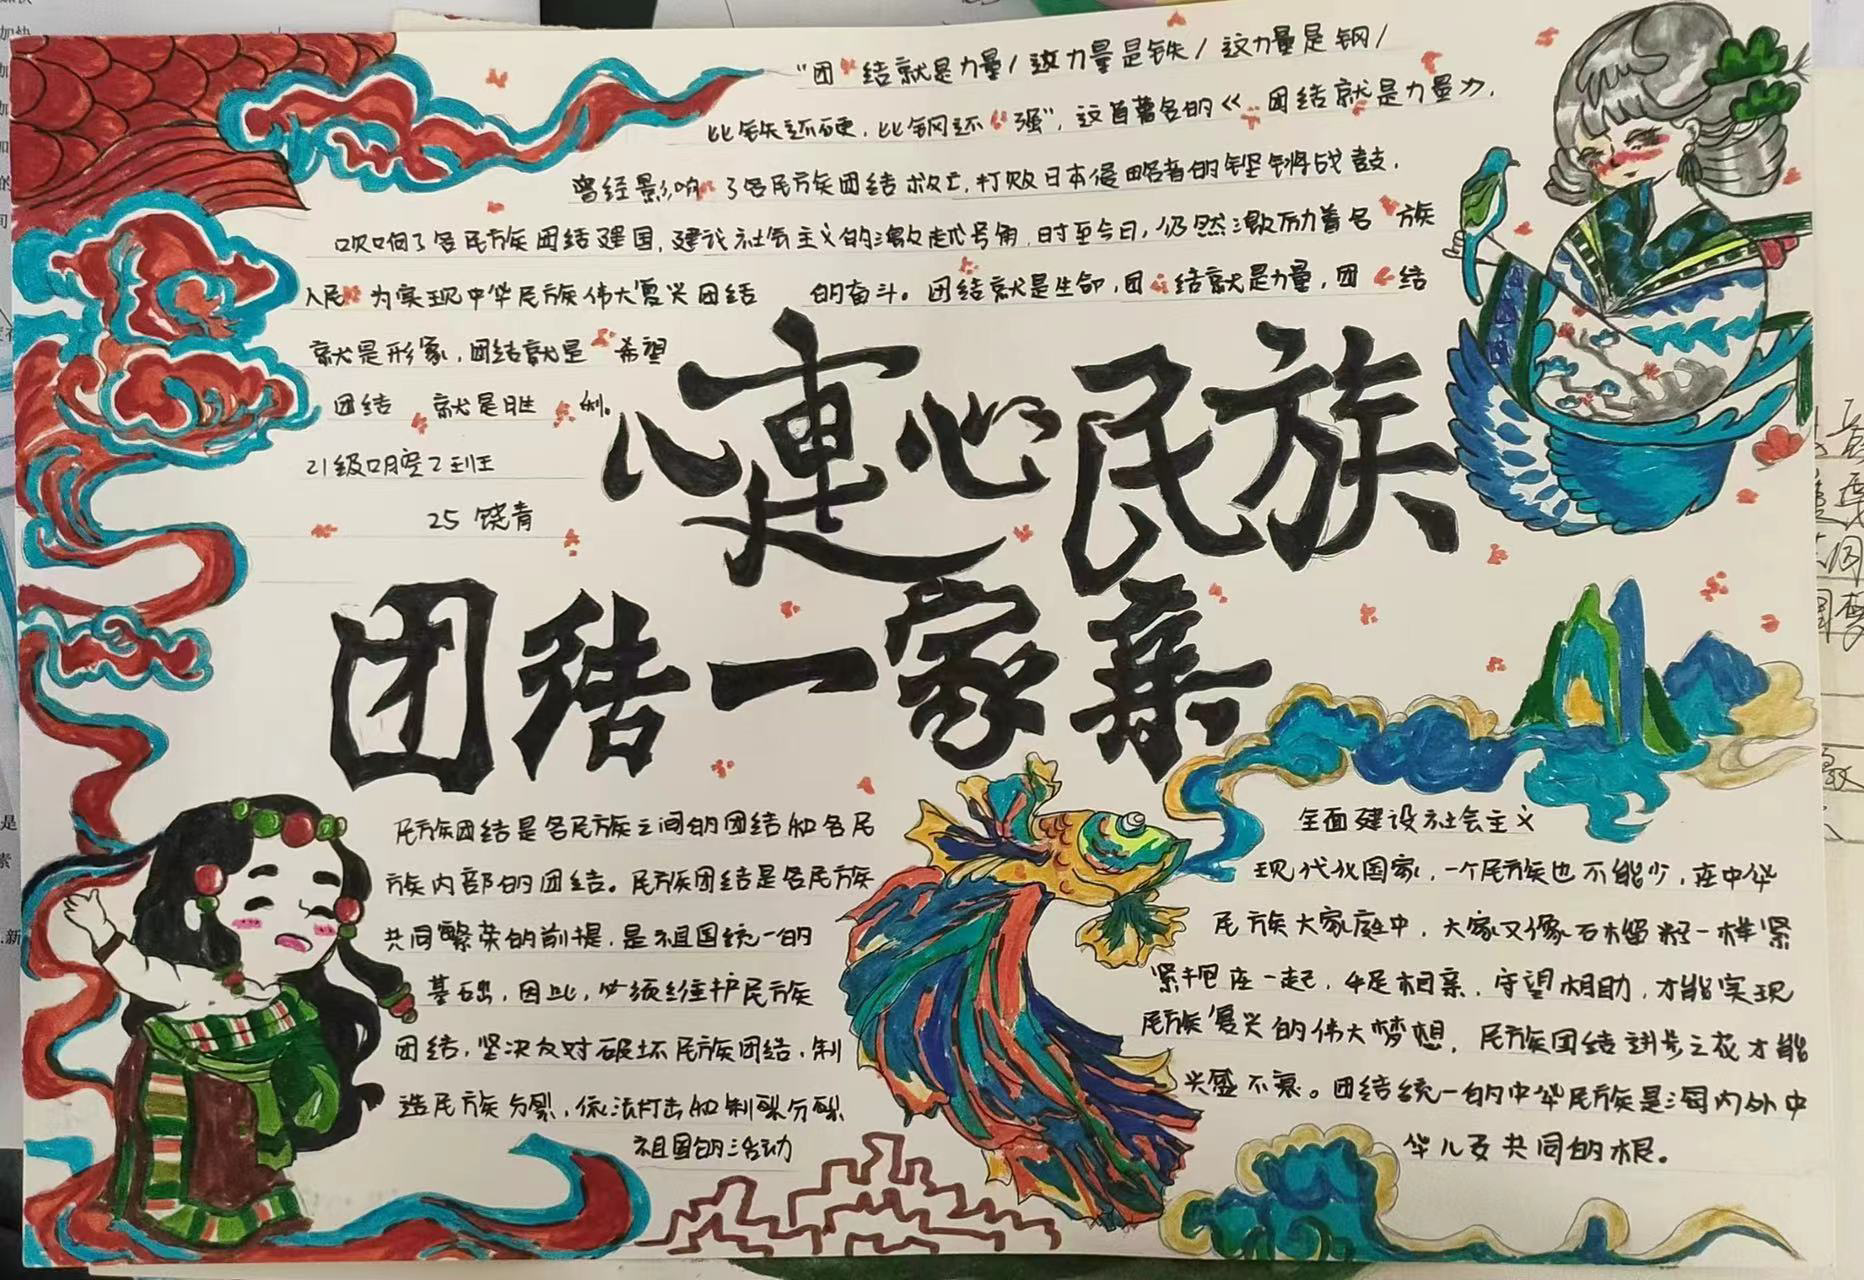 “团结就是力量/这力量是铁/这力量是钢/
比铁还硬,比钢还强”,这首著名的《团结就是力量》,
曾经影响了各民族团结救亡,打败日本侵略者的铿锵战鼓,
吹响了各民族团结建国,建设社会主义的激越号角,时至今日,仍然激励着各族
人民为实现中华民族伟大复兴团结的奋斗。团结就是生命,团结就是力量,团结
就是形象,团结就是希望
团结就是胜利。
21级口腔2班
25 饶青
心连心民族
团结一家亲
民族团结是各民族之间的团结和各民
族内部的团结。民族团结是各民族
共同繁荣的前提,是祖国统一的
基础,因此,必须维护民族
团结,坚决反对破坏民族团结,制
造民族分裂,依法打击和制裂分裂
祖国的活动
全面建设社会主义
现代化国家,一个民族也不能少,在中华
民族大家庭中,大家又像石榴籽一样紧
紧抱在一起,手足相亲,守望相助,才能实现
民族复兴的伟大梦想,民族团结进步之花才能
兴盛不衰。团结统一的中华民族是海内外中
华儿女共同的根。